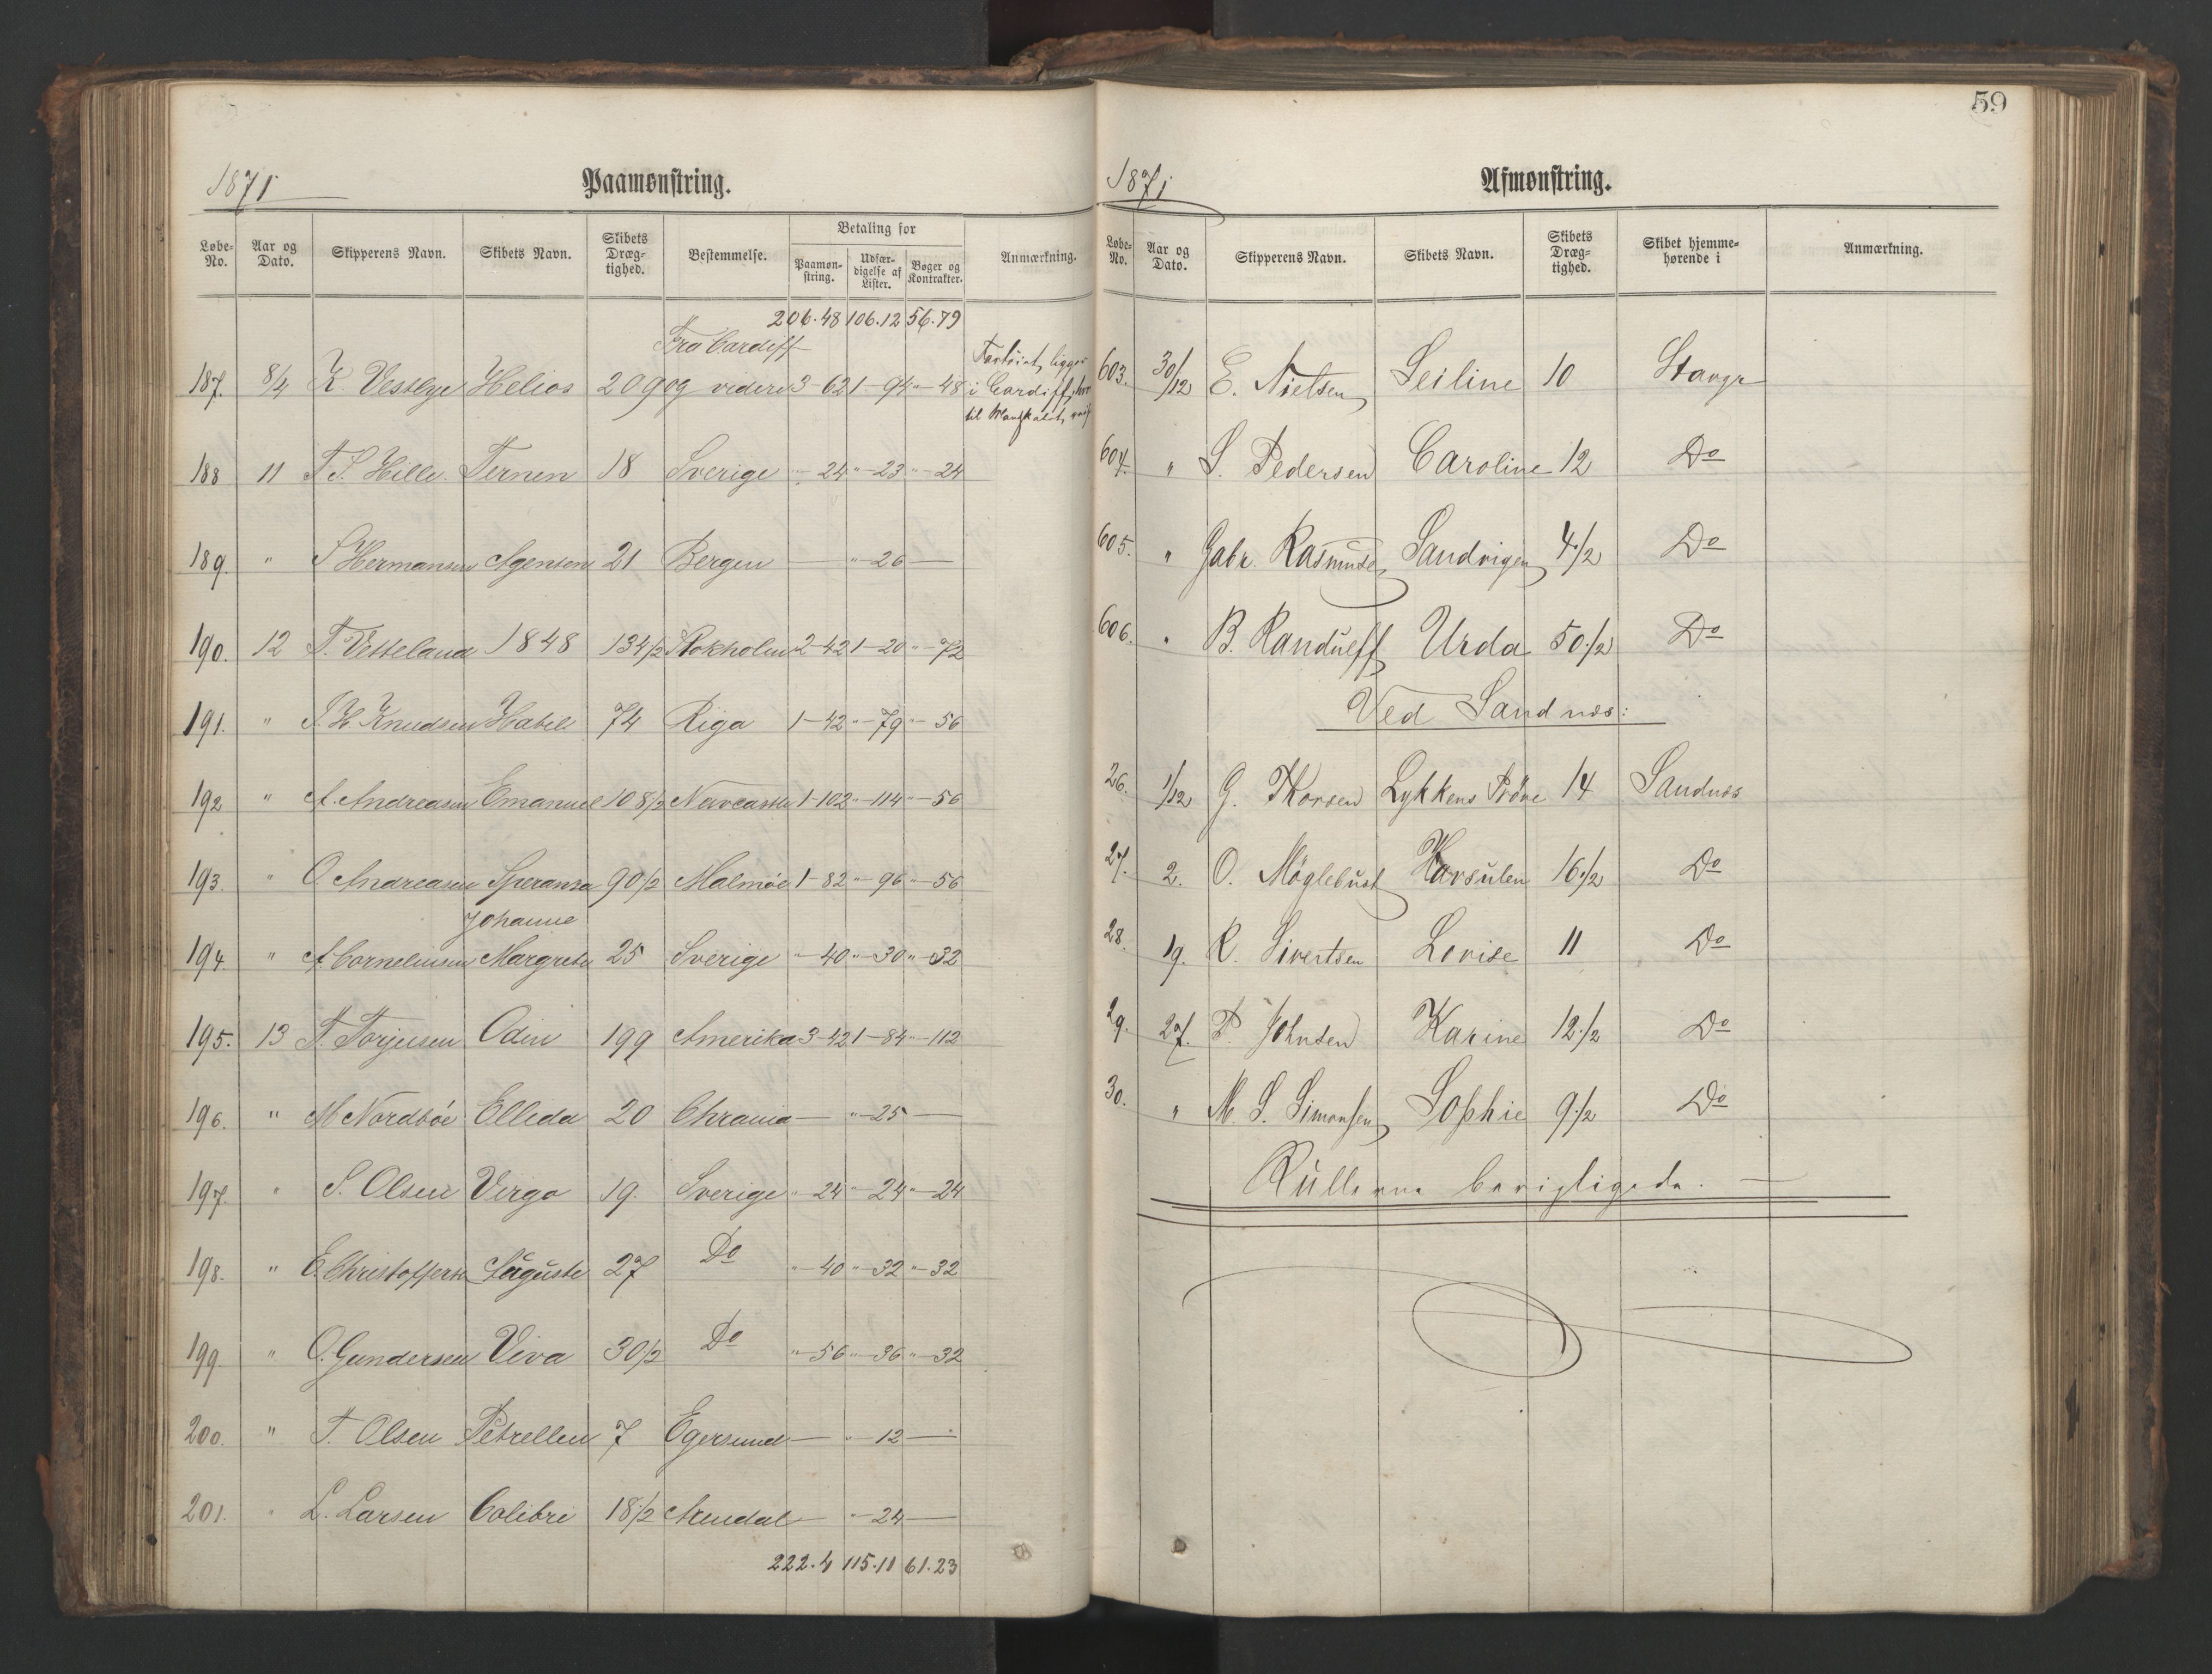 59
1871
Paamønstring.
Løbe-No. Aar og Dato. Skipperens Navn. Skibets Navn. Skibets Dræg-tighed. Bestemmelse. Betaling for Paamøn-string. Udfær-digelse af Lister. Bøger og Kontrakter. Anmærkning.
206.48 106.12 56.79
Fra Cardiff
187. 8/4 K. Vestbye Helios 209 og videre 3-62 1-94 "-48 Fartøiet ligger i Cardiff,
til
188 11 T. S. Hille. Ternen 18 Sverige "-24 "-23 "-24
189. " S Hermansen Agenten 21 Bergen — "-26 —
190. 12 T. Vetteland 1848 134 1/2 Stokholm 2-42 1-20 "-72
191. " S. H. Knudsen Habil 74 Riga 1-42 "-79 "-56
192 " A. Andreasen Emanuel 108 1/2 Newcastle 1-102 "-114 "-56
193. " O. Andreasen Speranza 90 1/2 Malmöe 1-82 "-96 "-56
Johanne
194. " A Corneliusen Margrete 25 Sverige "-40 "-30 "-32
195. 13 T. Torjusen Odin 199 Amerika 3-42 1-84 "-112
196. " M Nordböe Ellida 20 Chrania — "-25 —
197. " S. Olsen Virgo 19. Sverige "-24 "-24 "-24
198. " E. Christoffersen Auguste 27 Do "-40 "-32 "-32
199 " O. Gundersen Viva 30 1/2 Do "-56 "-36 "-32
200. " T. Olsen Petrellen 7 Egersund — "-12 —
201. " L. Larsen Colibri 18 1/2 Arendal — "-24 —
222.4 115.11 61.23
1871
Afmønstring.
Løbe-No. Aar og Dato. Skipperens Navn. Skibets Navn. Skibets Dræg-tighed. Skibet hjemme-hørende i Anmærkning.
603. 30/12 E. Nielsen Seiline 10 Stavgr
604. " S. Pedersen Caroline 12 Do
605. " Gabr. Rasmusen Sandvigen 4 1/2 Do
606. " B. Randulff Urda 50 1/2 Do
Ved Sandnæs:
26. 1/12 G. Thorsen Lykkens Pröve 14 Sandnæs
27. 2. O. Möglebust Havsulen 16 1/2 Do
28. 19. R. Sivertsen Lovise 11 Do
29. 27. P. Johnsen Karine 12 1/2 Do
30. " M. S. Simonsen Sophie 9 1/2 Do
Rullerne berigtigede. —